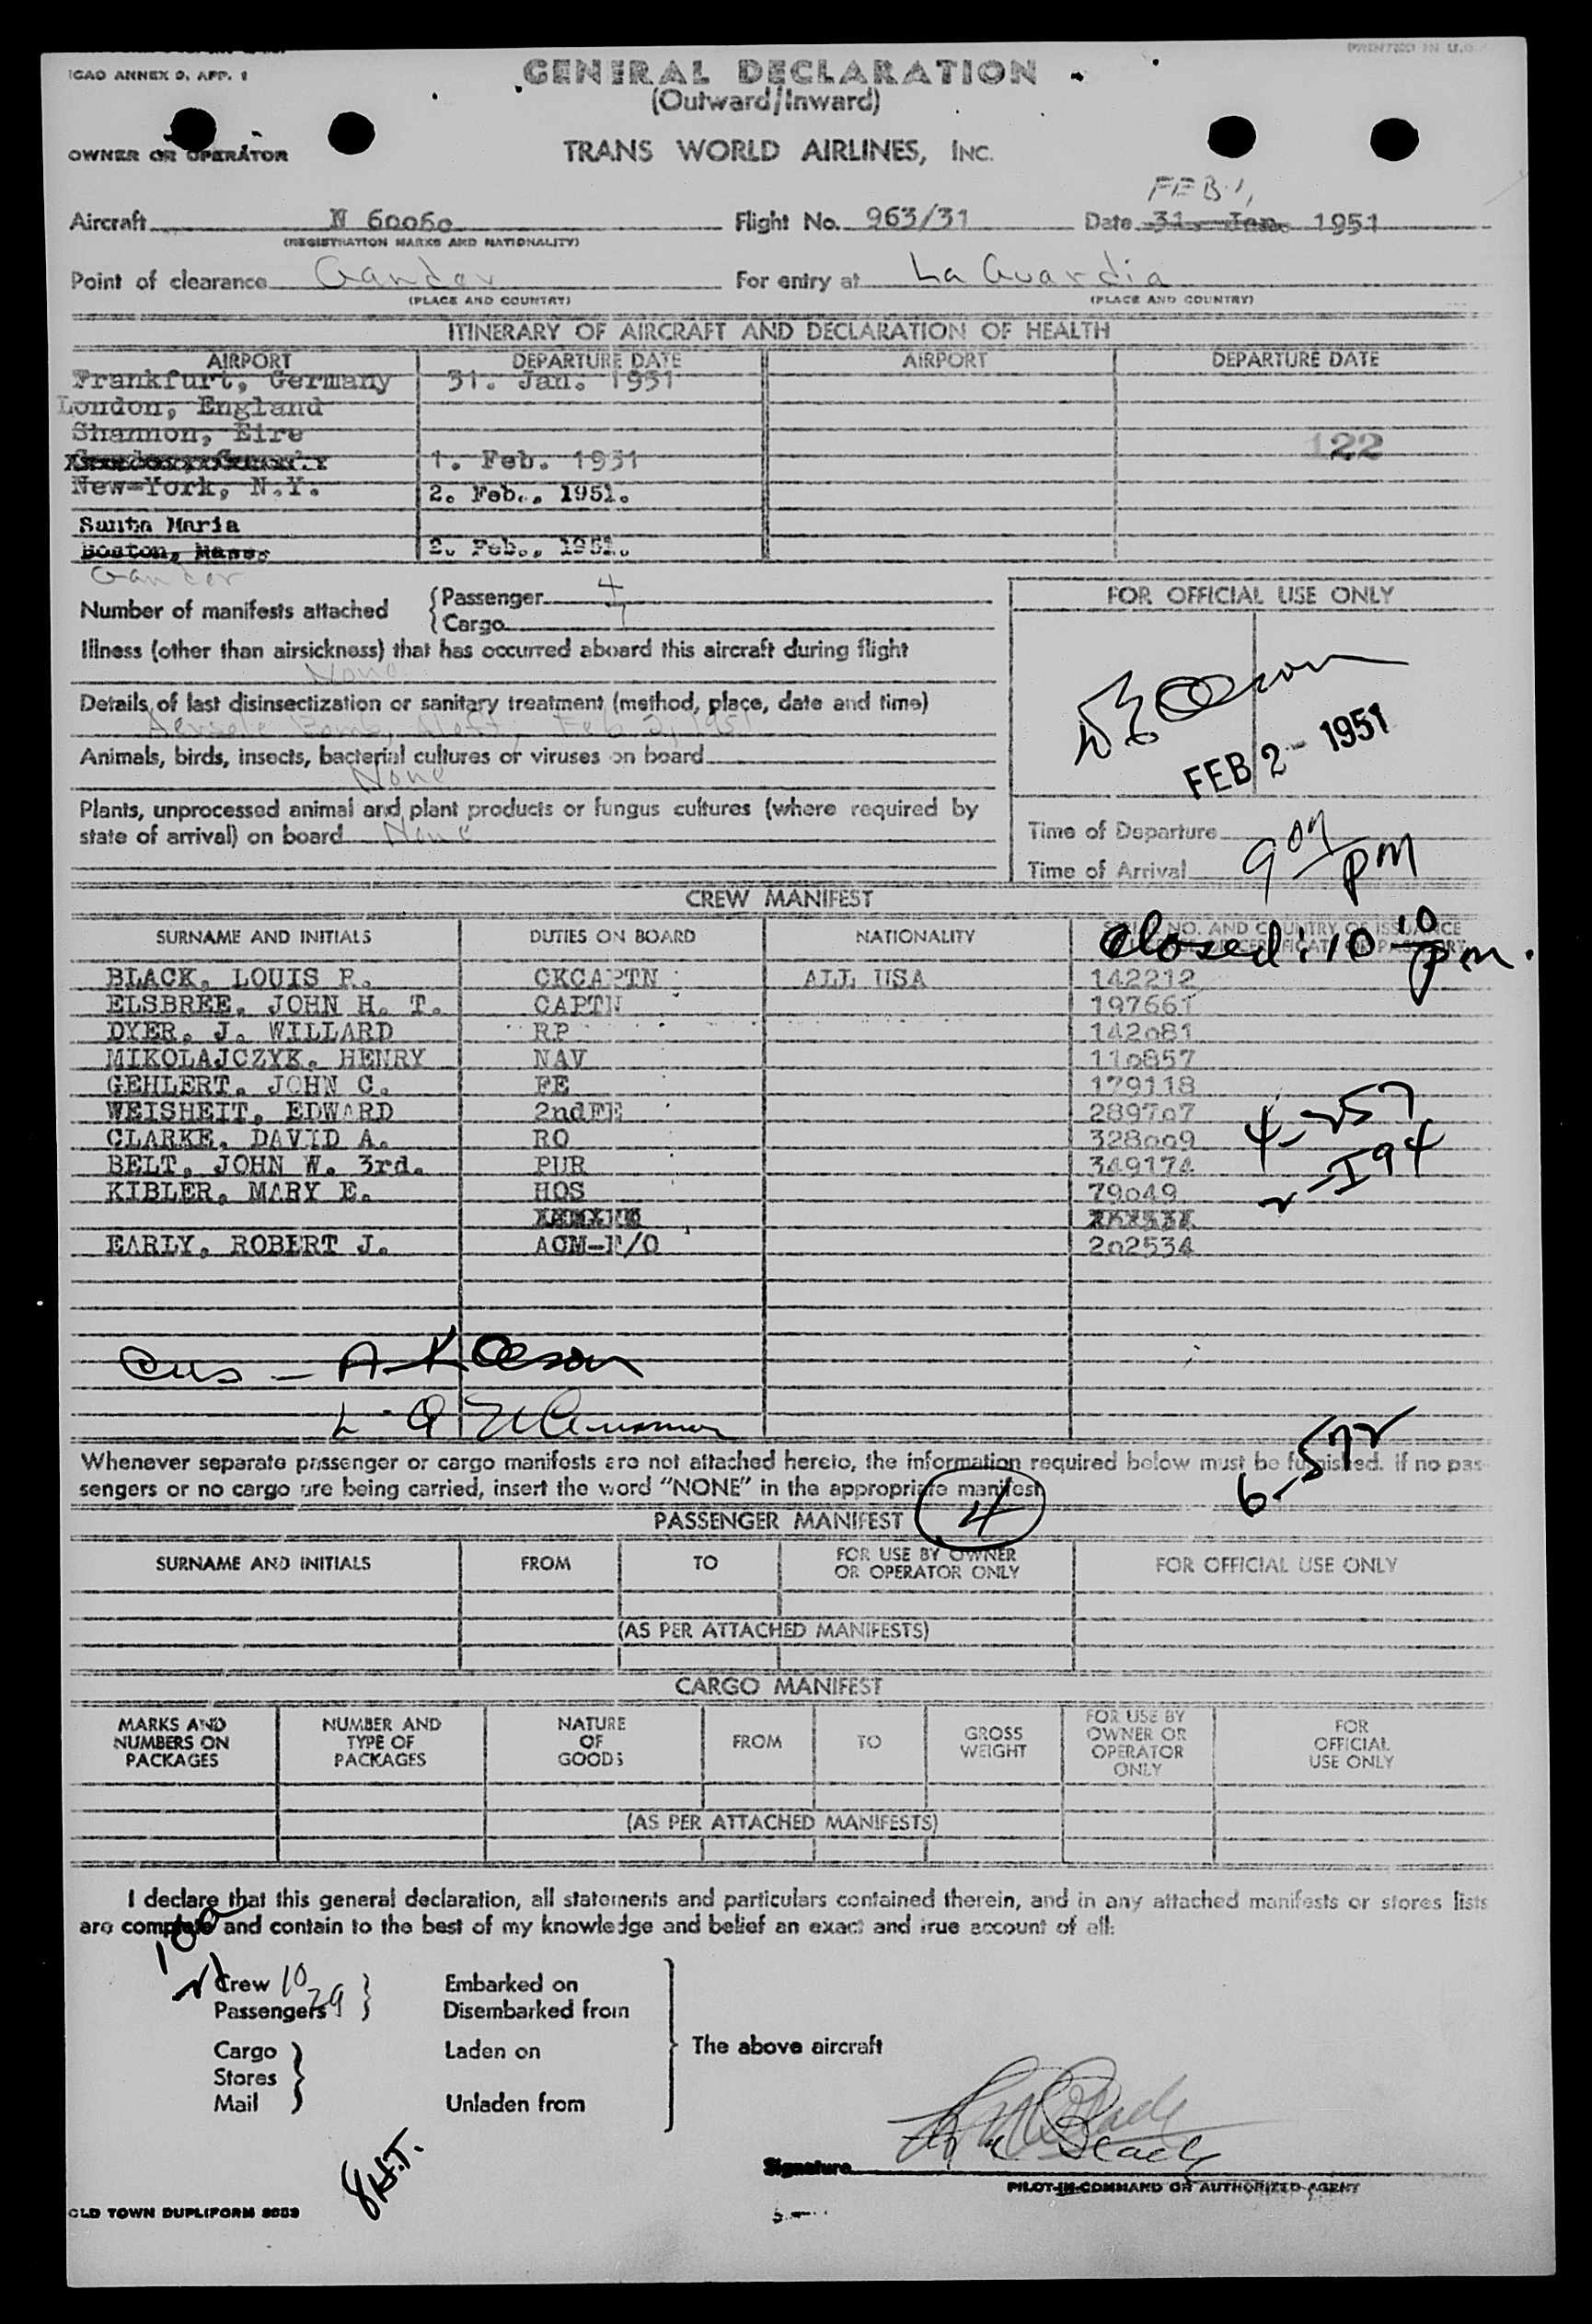 ICAO ANNEX 9, APP. 1
PRINTED IN U.S.
GENERAL DECLARATION
(Outward/Inward)
OWNER OR OPERATOR
TRANS WORLD AIRLINES, INC.
FEB. 1,
Aircraft N 60060 Flight No. 963/31 Date 31. Jan. 1951
(REGISTRATION MARKS AND NATIONALITY)
Point of clearance Gander For entry at La Guardia
(PLACE AND COUNTRY) (PLACE AND COUNTRY)
ITINERARY OF AIRCRAFT AND DECLARATION OF HEALTH
AIRPORT DEPARTURE DATE AIRPORT DEPARTURE DATE
Frankfurt, Germany 31. Jan. 1951
London, England
Shannon, Eire
122
1. Feb. 1951
New-York, N.Y. 2. Feb., 1951.
Santa Maria
Boston, Mass. 2. Feb., 1951.
Gander
Number of manifests attached { Passenger 4
{ Cargo 1
FOR OFFICIAL USE ONLY
Illness (other than airsickness) that has occurred aboard this aircraft during flight
None
Details of last disinsectization or sanitary treatment (method, place, date and time)
Aersole Bomb, Aloft, Feb 2, 1951
FEB 2 - 1951
Animals, birds, insects, bacterial cultures or viruses on board
None
Plants, unprocessed animal and plant products or fungus cultures (where required by
state of arrival) on board None
Time of Departure
Time of Arrival 9 09 pm
CREW MANIFEST
SURNAME AND INITIALS DUTIES ON BOARD NATIONALITY
Closed: 10 10 pm.
BLACK, LOUIS R. CKCAPTN ALL USA 142212
ELSBREE, JOHN H. T. CAPTN 197661
DYER, J. WILLARD RP 142081
MIKOLAJCZYK, HENRY NAV 110857
GEHLERT, JOHN C. FE 179118
WEISHEIT, EDWARD 2ndFE 289707
4-257
CLARKE, DAVID A. RO 328009
BELT, JOHN W. 3rd. PUR 349174
2-I94
KIBLER, MARY E. HOS 79049
EARLY, ROBERT J. ACM-F/O 202534
Cus - A K Olson
6-572
Whenever separate passenger or cargo manifests are not attached hereto, the information required below must be furnished. If no pas-
sengers or no cargo are being carried, insert the word "NONE" in the appropriate manifest.
PASSENGER MANIFEST 4
SURNAME AND INITIALS FROM TO FOR USE BY OWNER OR OPERATOR ONLY FOR OFFICIAL USE ONLY
(AS PER ATTACHED MANIFESTS)
CARGO MANIFEST
MARKS AND NUMBERS ON PACKAGES NUMBER AND TYPE OF PACKAGES NATURE OF GOODS FROM TO GROSS WEIGHT FOR USE BY OWNER OR OPERATOR ONLY FOR OFFICIAL USE ONLY
(AS PER ATTACHED MANIFESTS)
I declare that this general declaration, all statements and particulars contained therein, and in any attached manifests or stores lists
are complete and contain to the best of my knowledge and belief an exact and true account of all:
Crew 10 } Embarked on
Passengers 29 } Disembarked from
Cargo } Laden on
The above aircraft
Stores
Mail } Unladen from
8 H.T.
Signature
PILOT-IN-COMMAND OR AUTHORIZED AGENT
OLD TOWN DUPLIFORM 9053